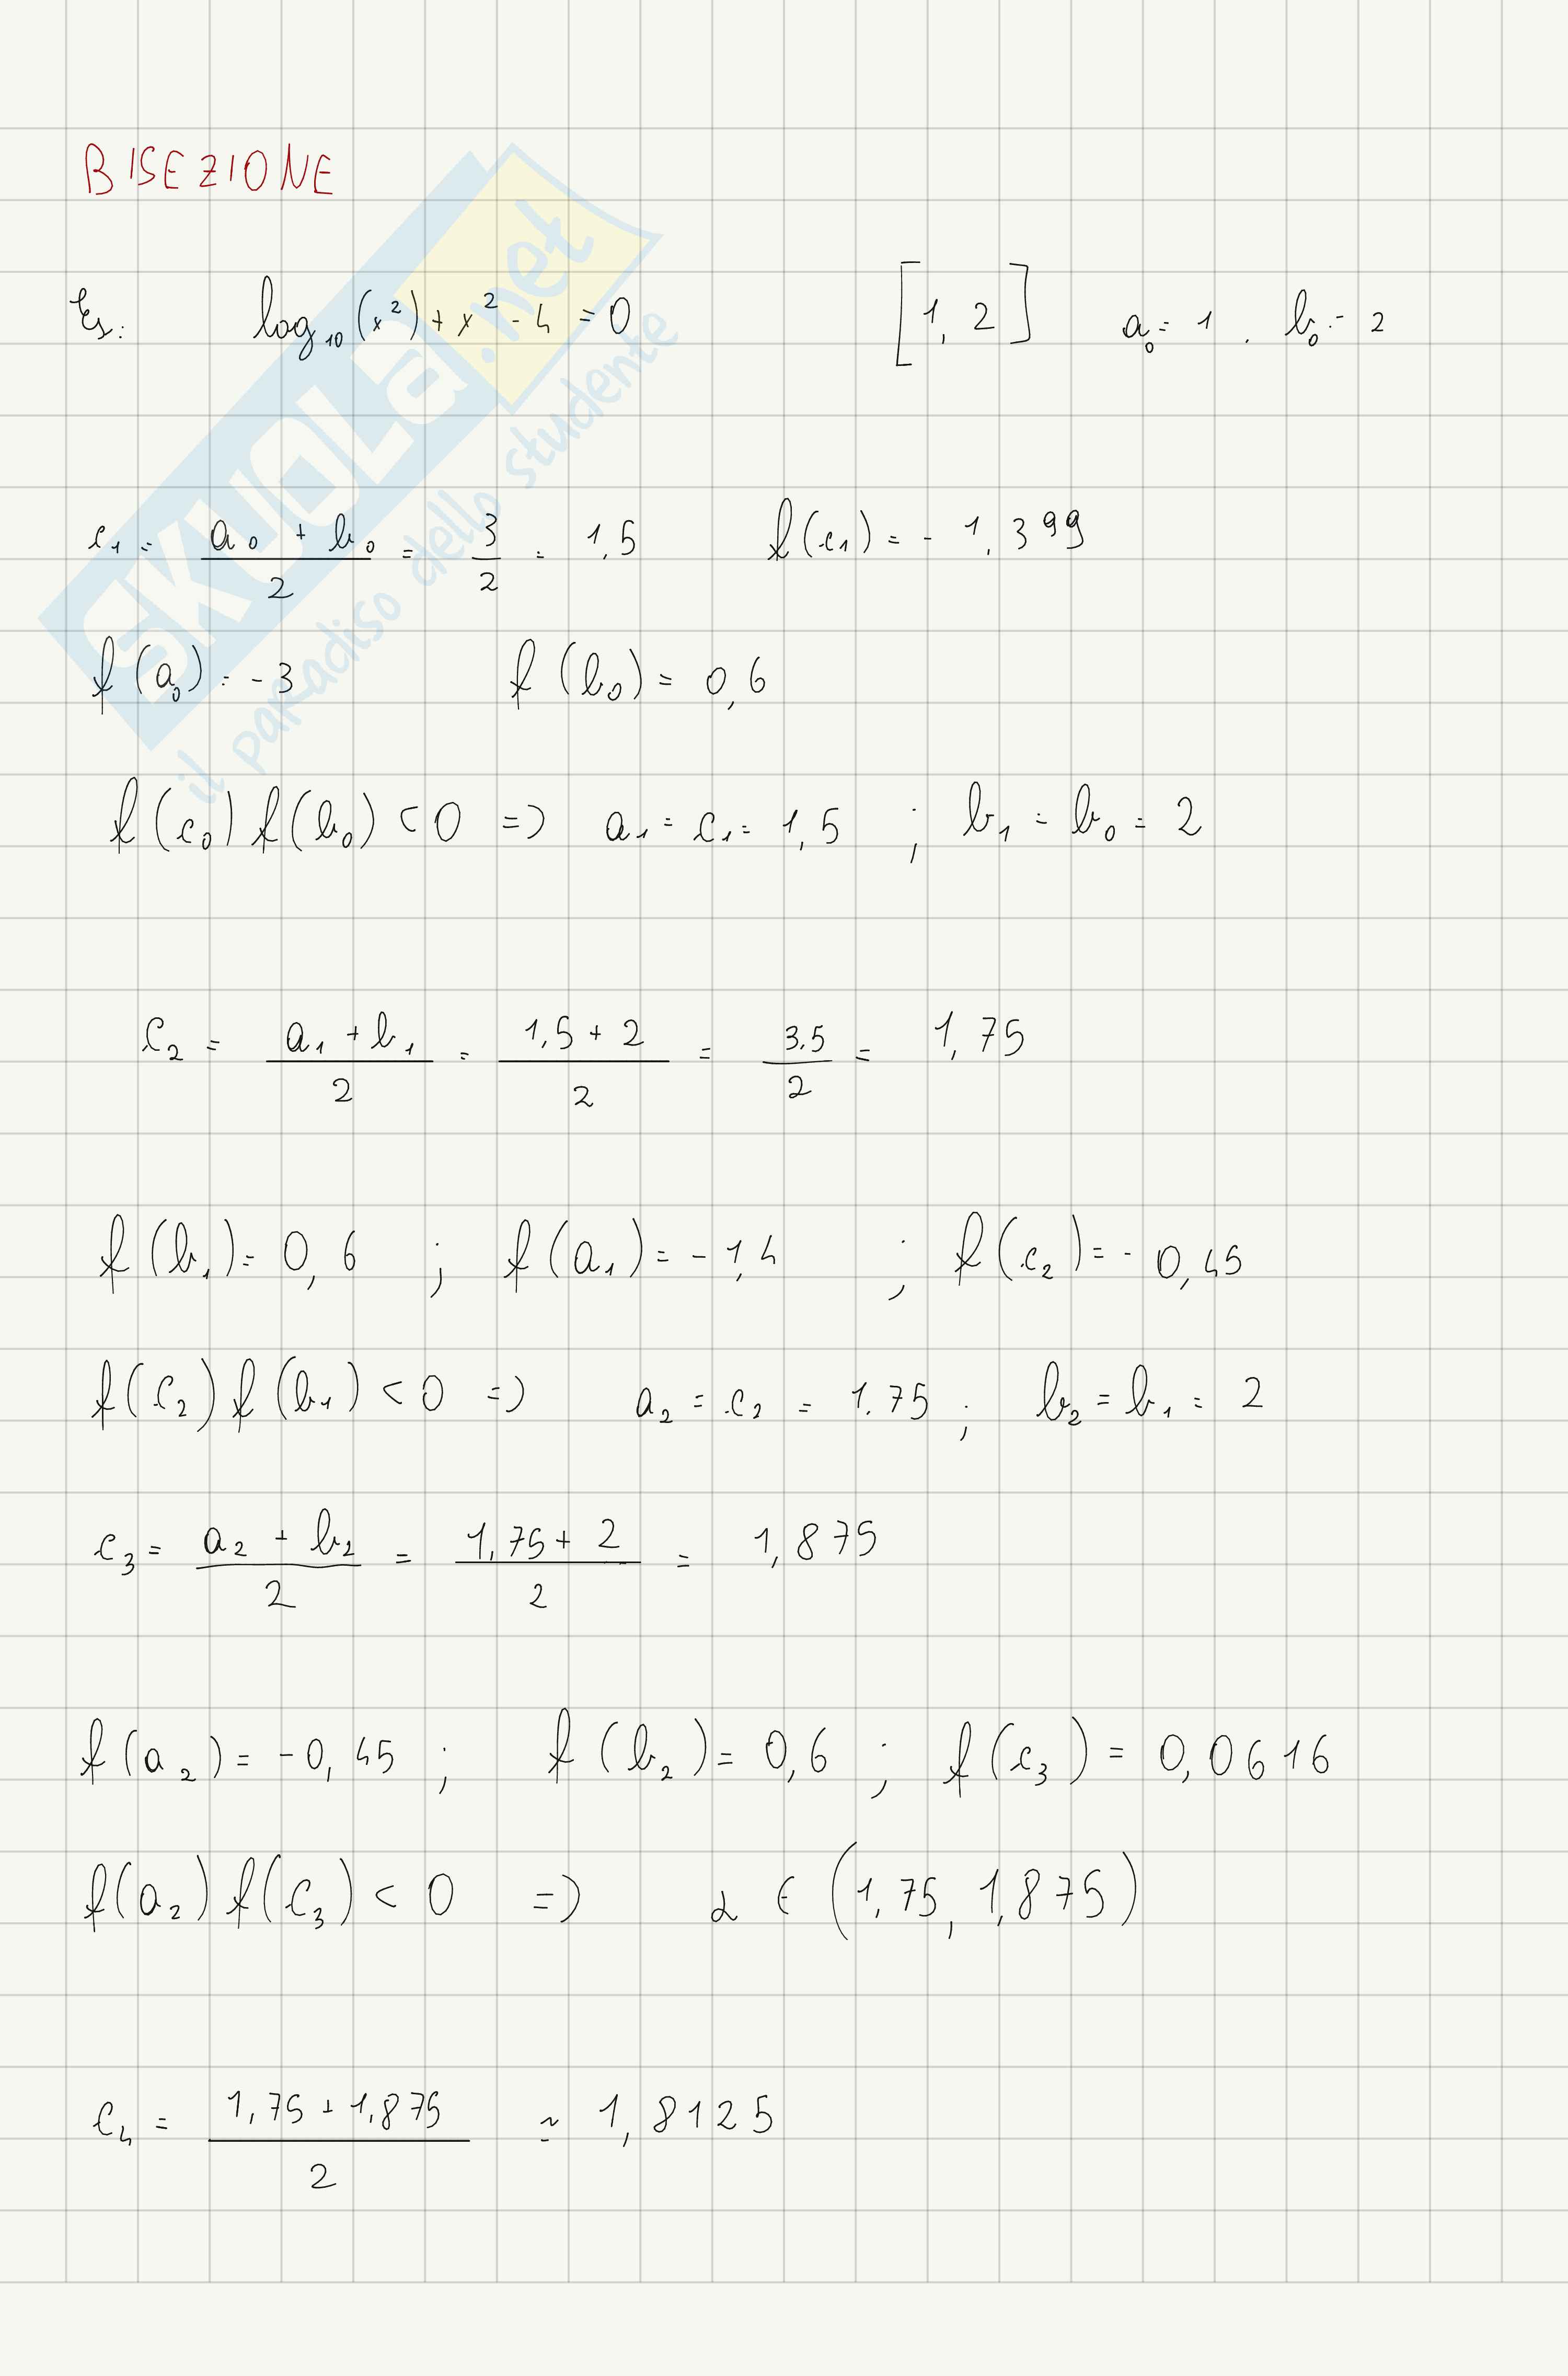 BISEZIONE
Es: log₁₀(x²) + x² - 4 = 0 [1, 2] a₀ = 1 . b₀ = 2
c₁ = (a₀ + b₀)/2 = 3/2 = 1,5 f(c₁) = - 1,399
f(a₀) = -3 f(b₀) = 0,6
f(c₀) f(b₀) < 0 => a₁ = c₁ = 1,5 ; b₁ = b₀ = 2
c₂ = (a₁ + b₁)/2 = (1,5 + 2)/2 = 3.5/2 = 1,75
f(b₁) = 0,6 ; f(a₁) = -1,4 ; f(c₂) = - 0,45
f(c₂) f(b₁) < 0 => a₂ = c₂ = 1.75 ; b₂ = b₁ = 2
c₃ = (a₂ + b₂)/2 = (1,75 + 2)/2 = 1,875
f(a₂) = -0,45 ; f(b₂) = 0,6 ; f(c₃) = 0,0616
f(a₂) f(c₃) < 0 => α ∈ (1,75, 1,875)
c₄ = (1,75 + 1,875)/2 ≃ 1,8125
SKUOLa.net
il paradiso dello studente